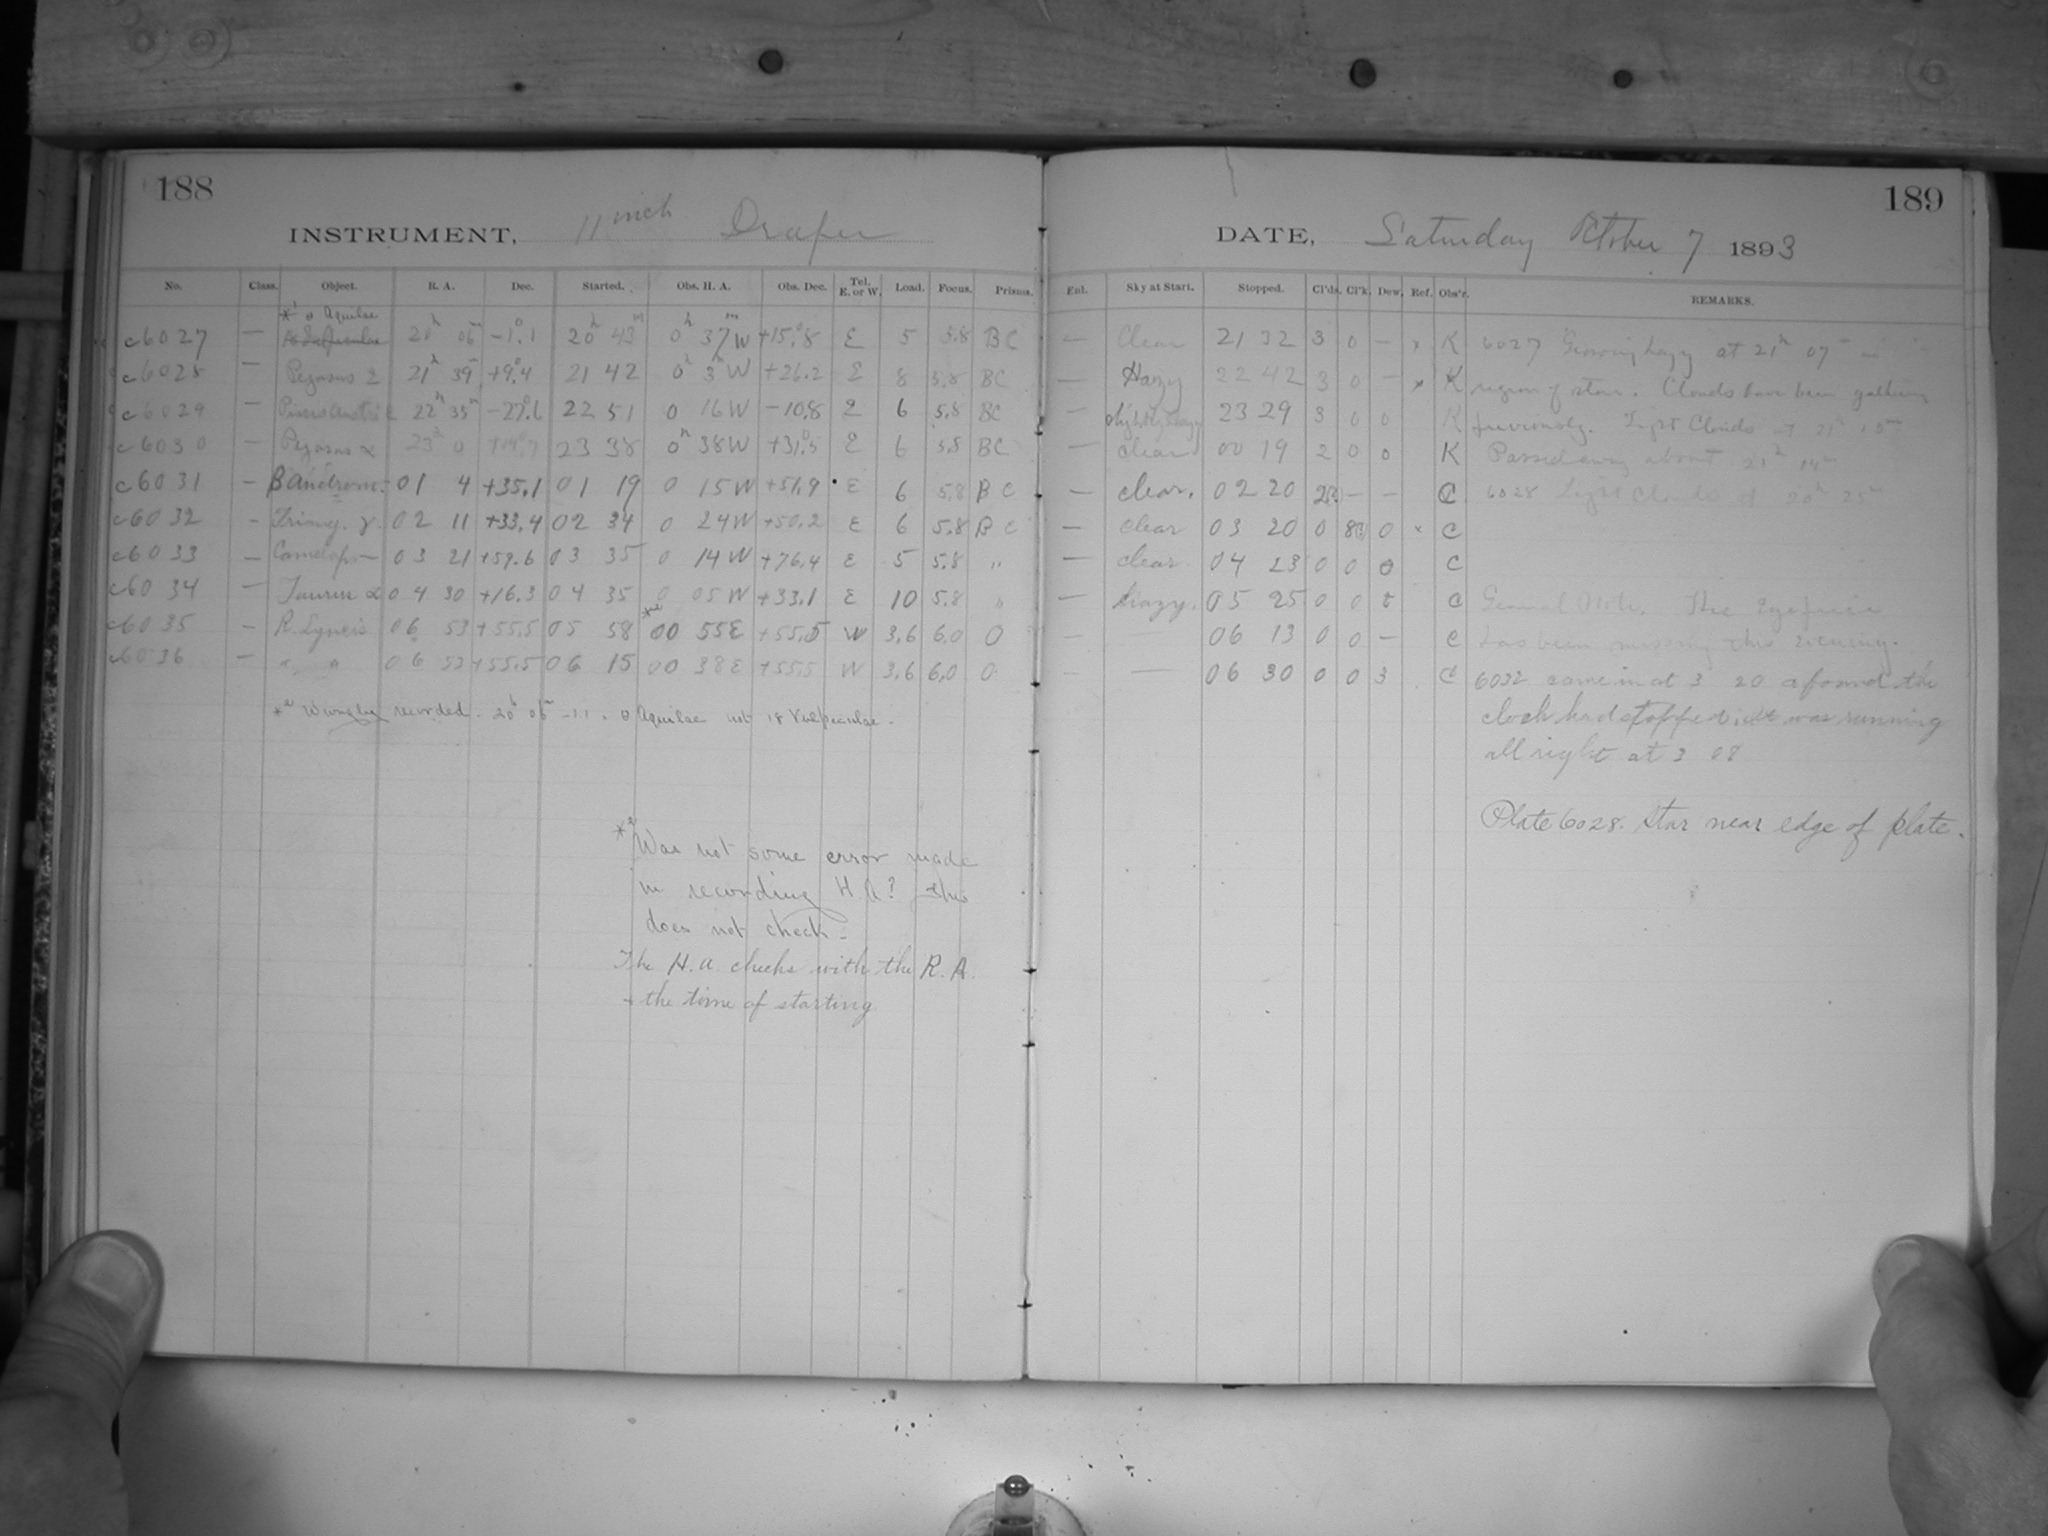 188
INSTRUMENT, 11 inch Draper
No. Class. Object. R. A. Dec. Started. Obs. H. A. Obs. Dec. Tel. E. or W. Load. Focus. Prisms.
*1 θ Aquilae
c6027 — 20h 06m −1°.1 20h 43m 0h 37mW +15°.8 E 5 5.8 BC
c6028 — Pegasus ε 21h 39m +9°.4 21 42 0h 3mW +26.2 E 8 5.8 BC
c6029 — 22h 35m −27°.6 22 51 0 16W −10.8 E 6 5.8 BC
c6030 — Pegasus α 23h 0 +14°.7 23 38 0h 38W +31°.5 E 6 5.8 BC
c6031 — β Androm. 01 4 +35.1 01 19 0 15W +51.9 E 6 5.8 BC
c6032 — Triang. γ. 02 11 +33.4 02 34 0 24W +50.2 E 6 5.8 BC
c6033 — Camelop— 03 21 +59.6 03 35 0 14W +76.4 E 5 5.8 "
c6034 — Taurus α 04 30 +16.3 04 35 0 05W +33.1 E 10 5.8 "
c6035 — R. Lyncis 06 53 +55.5 05 58 *2 00 55E +55.5 W 3,6 6.0 O
c6036 — " " 06 53 +55.5 06 15 00 38E +55.5 W 3,6 6.0 O
Wrongly recorded. 20h 06m −1.1. θ Aquilae not 18 Vulpeculae.
*2 Was not some error made
in recording H. A? This
does not check.
The H.A checks with the R.A.
+ the time of starting
189
DATE, Saturday October 7 1893
Enl. Sky at Start. Stopped. Cl'ds. Cl'k. Dew. Ref. Obs'r. REMARKS.
— Clear 21 32 3 0 — x K 6027 Growing hazy at 21h 07m in
— Hazy 22 42 3 0 — x K region of star. Clouds have been gathering
— slightly hazy 23 29 3 0 0 K previously. Light Clouds at 21h 10m
— clear 00 19 2 0 0 K Passed away about 21h 14m
— clear. 02 20 — — C 6028 Light Clouds at 20h 25m
— clear 03 20 0 0 x C
— clear. 04 23 0 0 0 C
— Hazy. 05 25 0 0 C General Note. The Eyepiece
— 06 13 0 0 — C has been missing this evening.
— — 06 30 0 0 3 C 6032 came in at 3 20 & found the
clock had stopped, it was running
all right at 3 08
Plate 6028. Star near edge of plate.